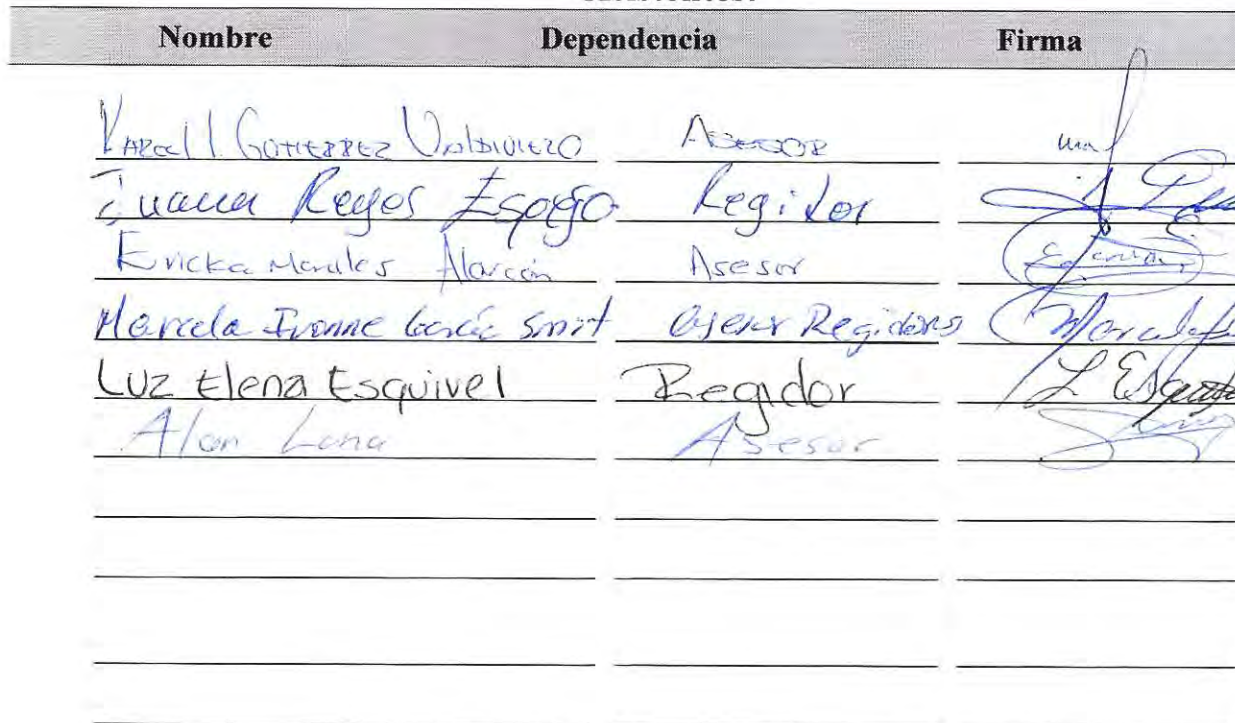 Nombre Dependencia Firma
Karel I. GUTIERREZ Valdiviezo ASESOR
Juana Reyes Espejo Regidor
Ericka Morales Alarcón Asesor
Marcela Ivonne García Smit Asesor Regidores Marcela
Luz Elena Esquivel Regidor L Esquivel
Alan Luna Asesor